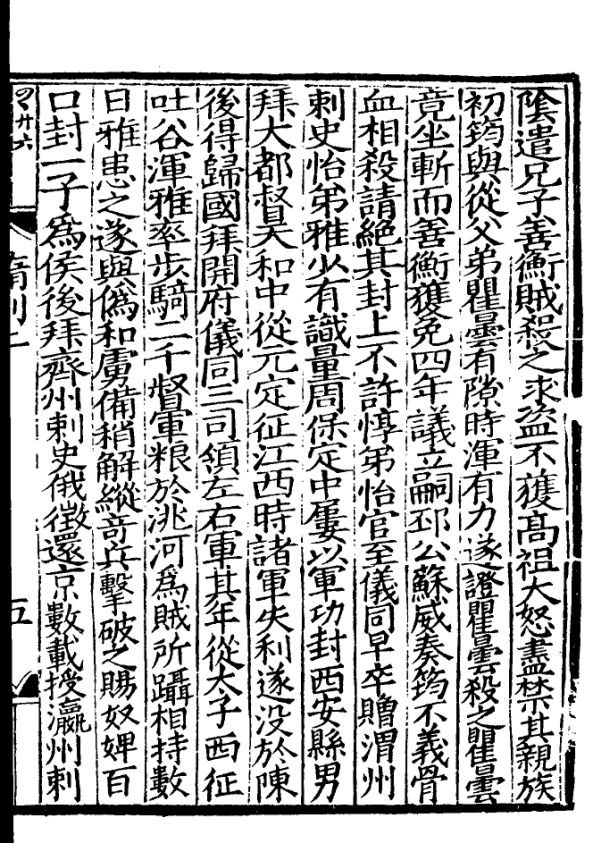 陰遣兄子善衡賊殺之求盗不獲髙祖大怒盡禁其親族
初筠與從父弟瞿曇有隙時渾有力遂證瞿曇殺之瞿曇
竟坐斬而善衡獲免四年議立嗣邳公蘇威奏筠不義骨
血相殺請絶其封上不許惇弟怡官至儀同早卒贈渭州
刺史怡弟雅少有識量周保定中屢以軍功封西安縣男
拜大都督天和中從元定征江西時諸軍失利遂没於陳
後得歸國拜開府儀同三司領左右軍其年從太子西征
吐谷渾雅率步騎二千督軍粮於洮河爲賊所躡相持數
日雅患之遂與僞和虜備稍解縱竒兵擊破之賜奴婢百
口封一子爲侯後拜齊州刺史俄徵還京數載授瀛州刺
隋列二
五